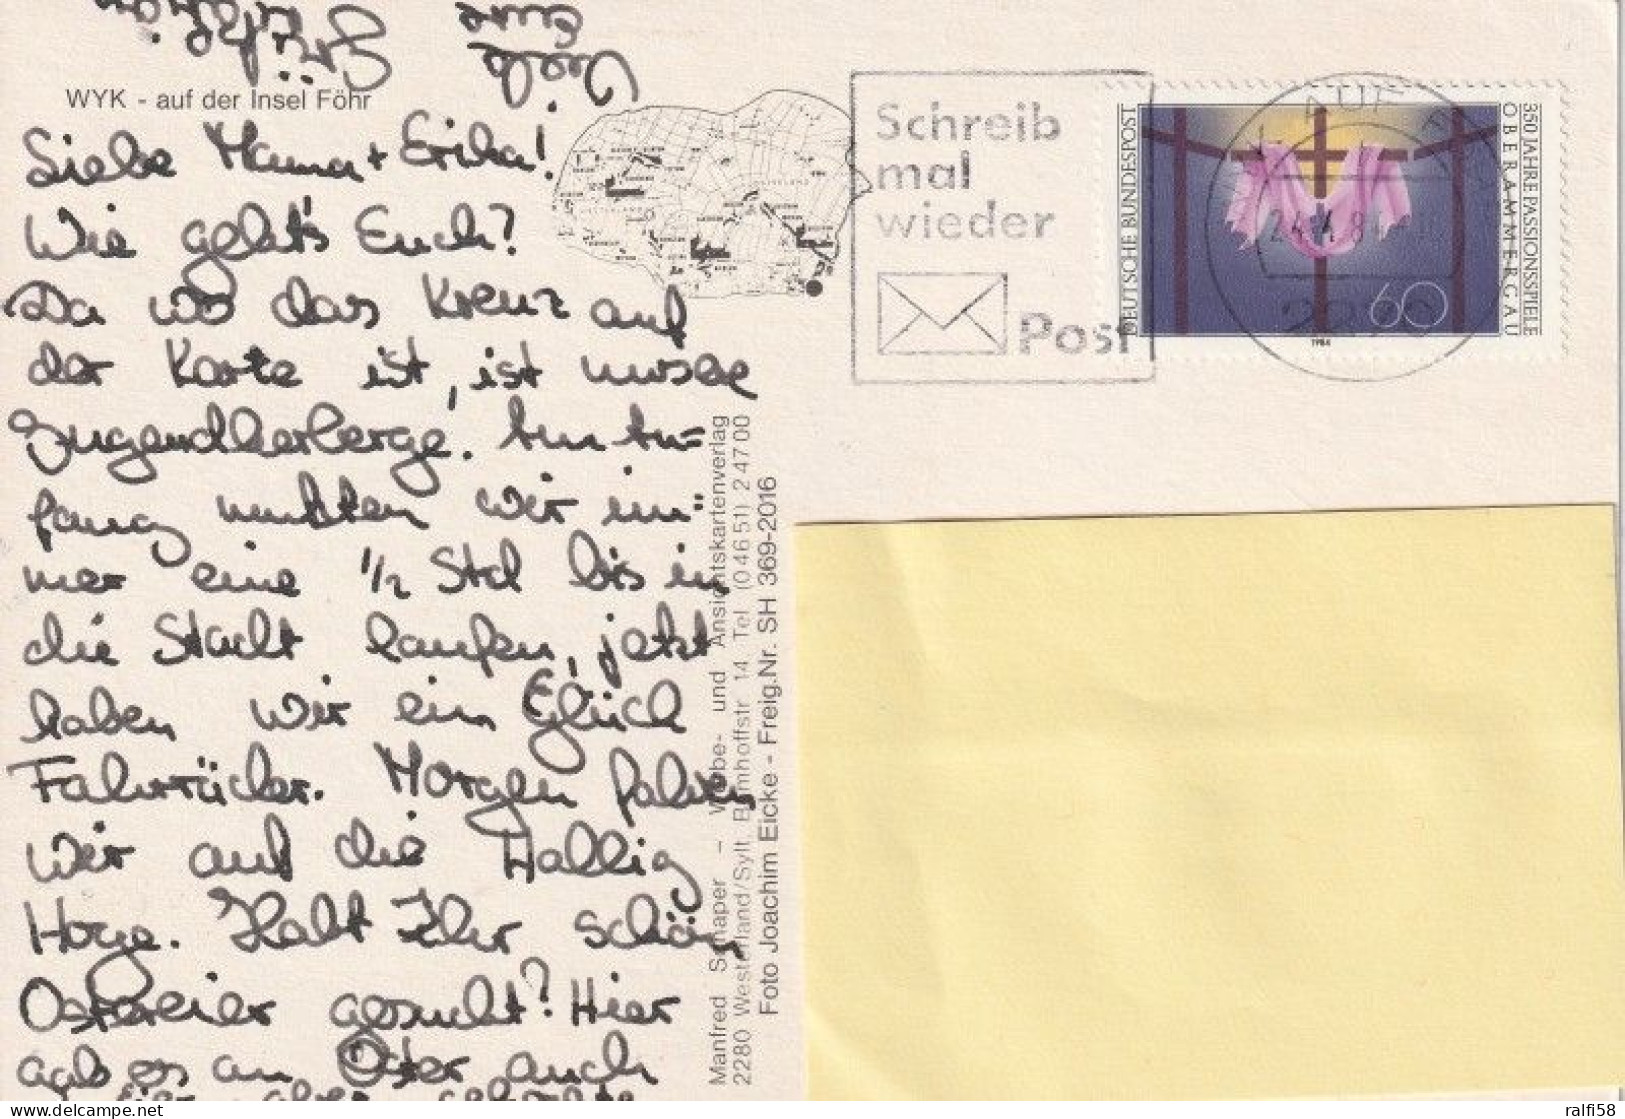 WYK - auf der Insel Föhr
Liebe Mama + Erika!
Wie geht's Euch?
Da wo das Kreuz auf
der Karte ist, ist unsere
Jugendherberge. Am An-
fang mußten wir im-
mer eine 1/2 Std bis in
die Stadt laufen, jetzt
haben wir ein Glück
Fahrräder. Morgen fahren
wir auf die Hallig
Hooge. Habt Ihr schön
Ostereier gesucht? Hier
gab es an Oster auch
Eier, aber gefärbte
Viele Grüße
Eure
Manfred Schaper – Werbe- und Ansichtskartenverlag
2280 Westerland/Sylt, Bahnhoffstr 14, Tel (04651) 24700
Foto Joachim Eicke - Freig.Nr. SH 369-2016
Schreib
mal
wieder
Post
AUF F
24.4.84
DEUTSCHE BUNDESPOST
350 JAHRE PASSIONSSPIELE
OBERAMMERGAU
60
1984
ralfi58